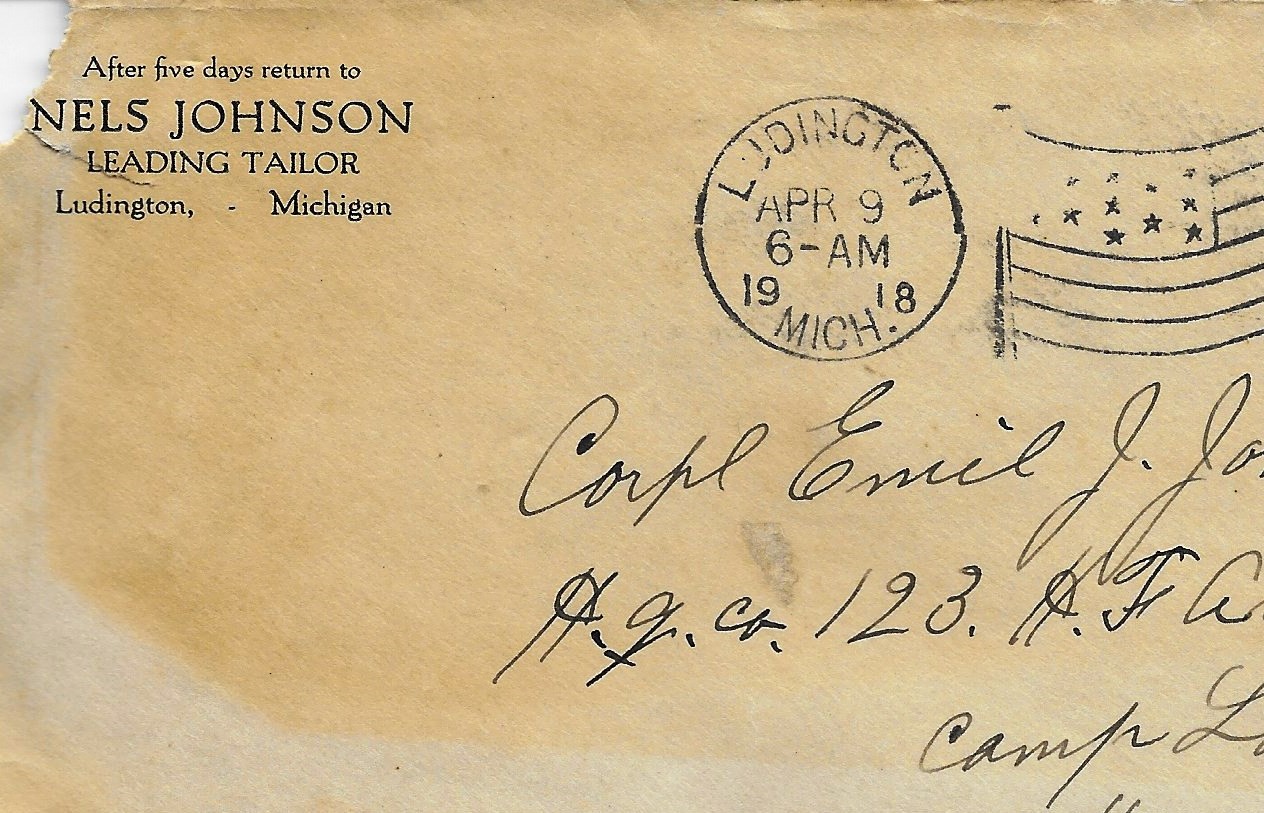 After five days return to
NELS JOHNSON
LEADING TAILOR
Ludington, - Michigan
LUDINGTON
APR 9
6-AM
19 18
MICH.
Corpl Emil J. Jo
H.q. co. 123. H.F A.
Camp L